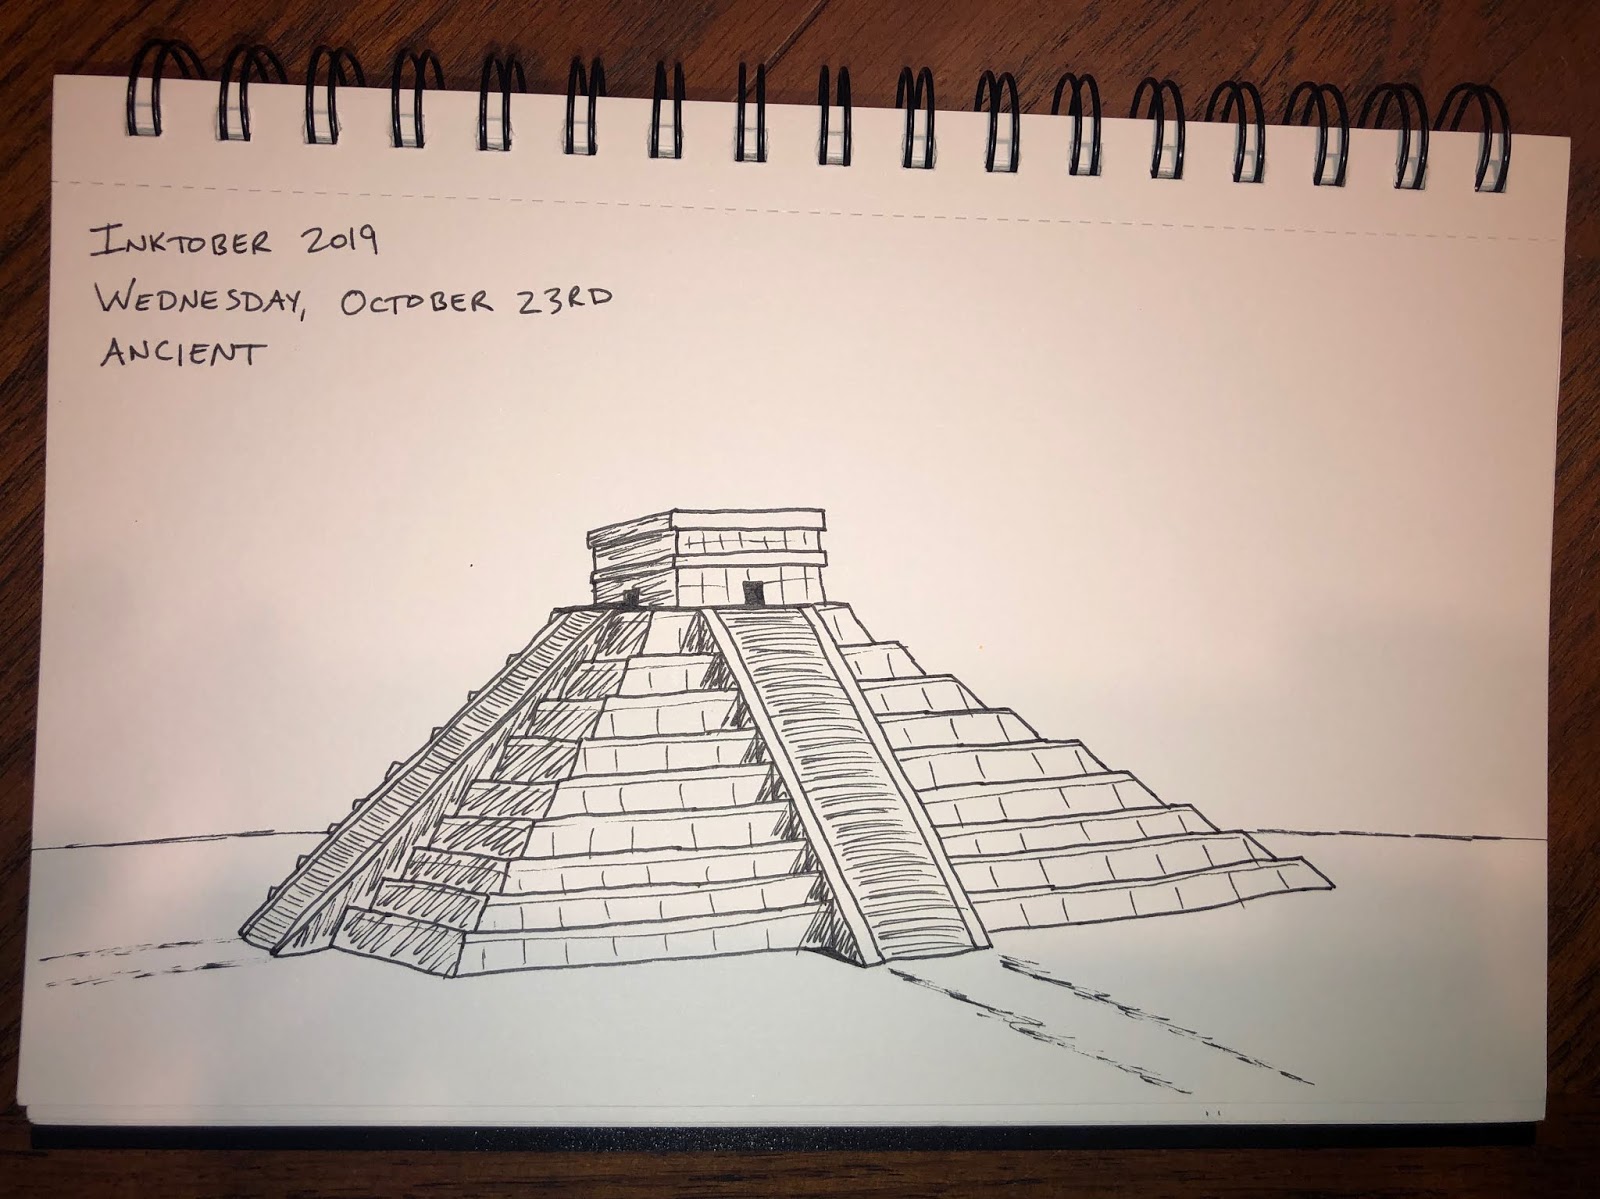 INKTOBER 2019
WEDNESDAY, OCTOBER 23RD
ANCIENT